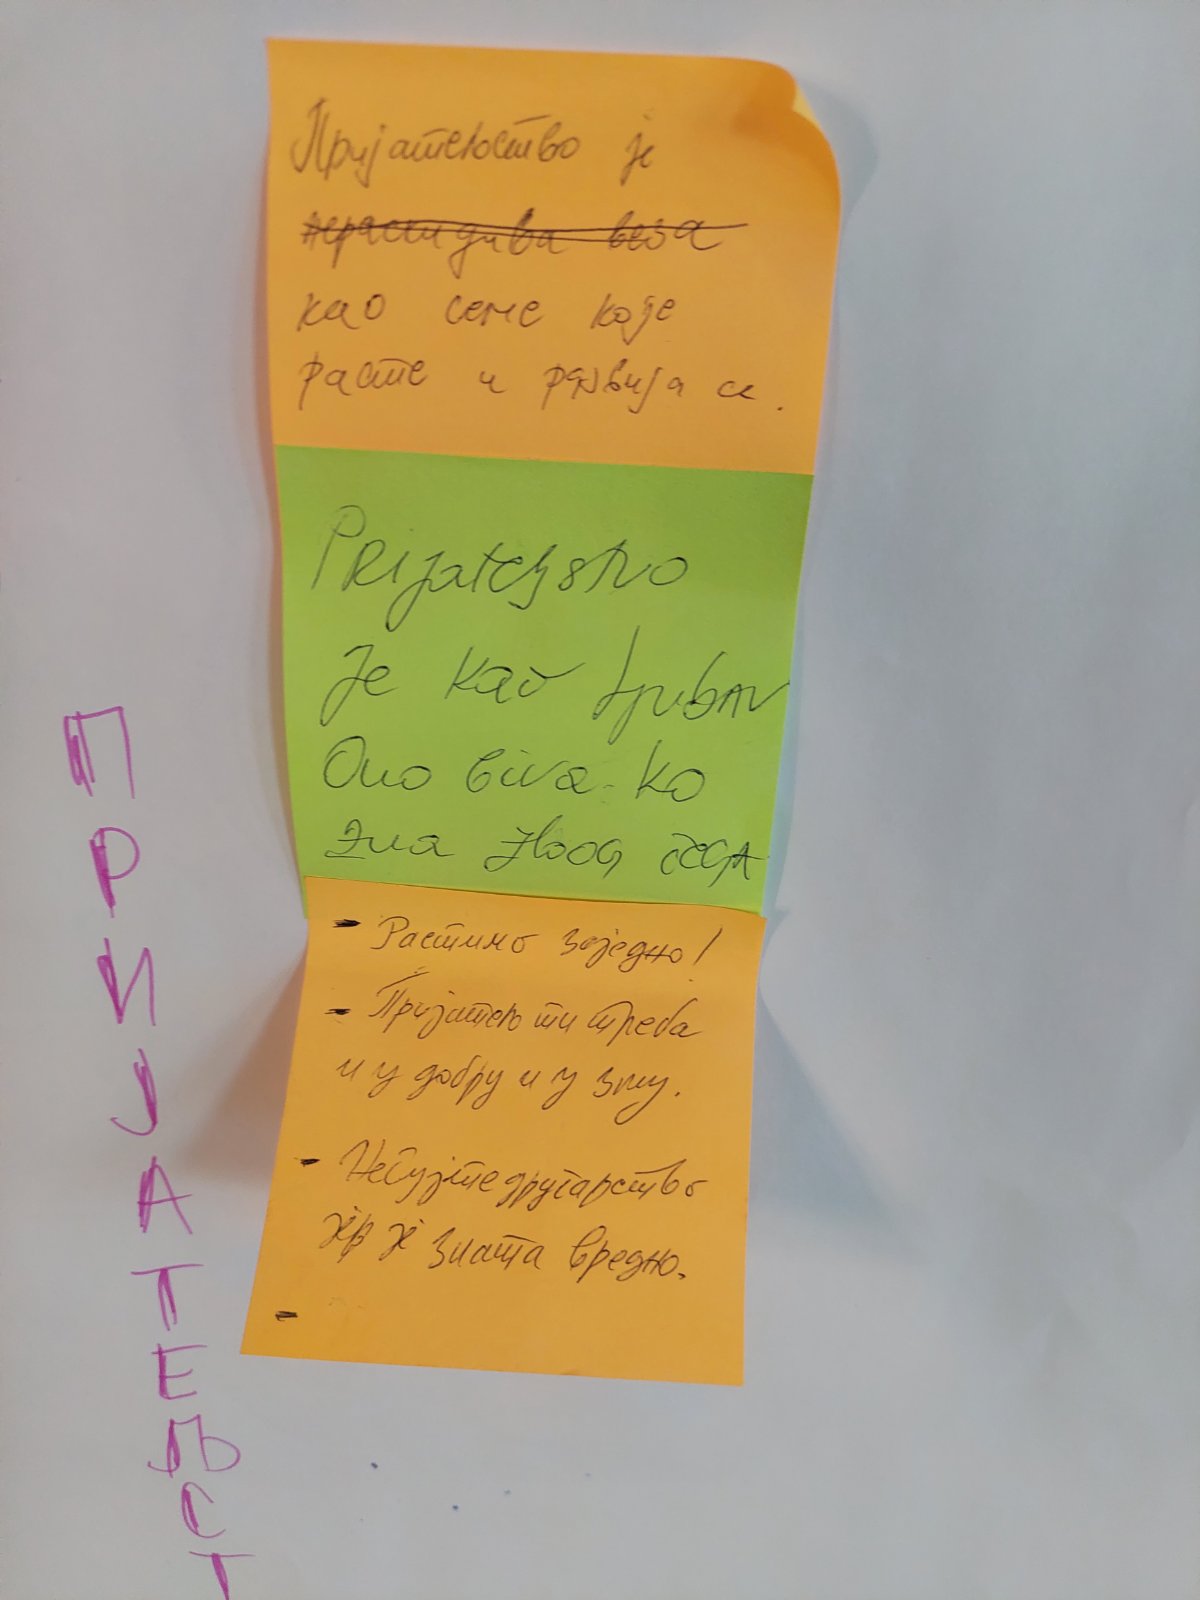 Пријатељство је
нераскидива веза
као семе које
расте и развија се.
Prijateljstvo
je kao ljubav
Ono biva. ko
zna zbog čega
- Растимо заједно!
- Пријатељ ти треба
и у добру и у злу.
- Негујте другарство
злата вредно.
-
ПРИЈАТЕЉСТ